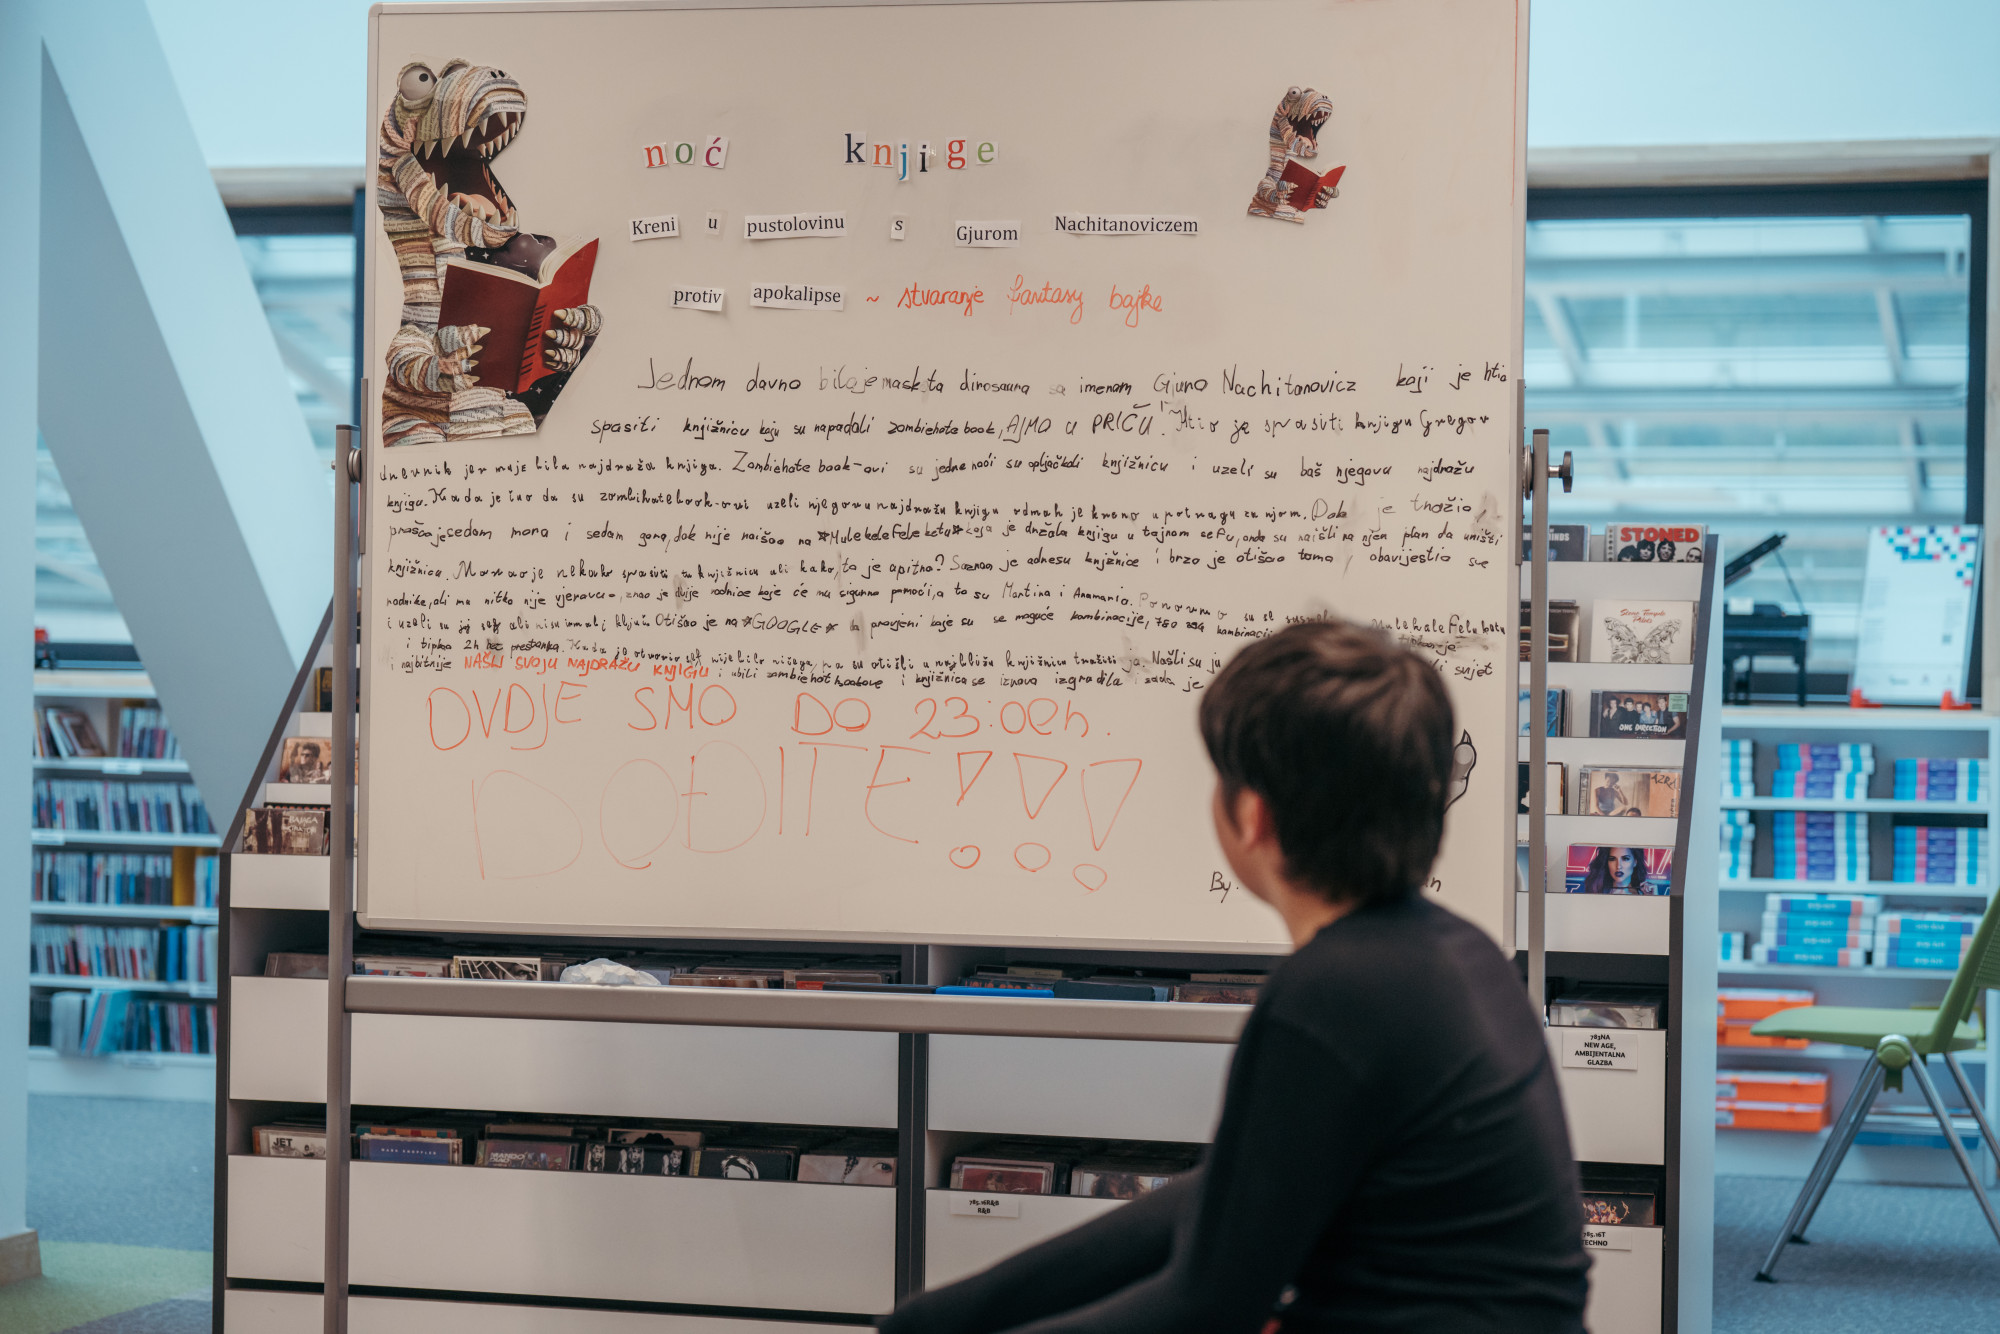 noć knjige
Kreni u pustolovinu s Gjurom Nachitanoviczem
protiv apokalipse ~ stvaranje fantasy bajke
Jednom davno bila je maskota dinosaura sa imenom Gjuro Nachitanovicz koji je htio
spasiti knjižnicu koju su napadali zombiehatebook, AJMO U PRIČU! Htio je spasiti knjigu Gregov
dnevnik jer mu je bila najdraža knjiga. Zombiehate book-ovi su jedne noći su opljačkali knjižnicu i uzeli su baš njegovu najdražu
knjigu. Kada je čuo da su zombihatebook-ovi uzeli njegovu najdražu knjigu odmah je krenuo u potragu za njom. Dok je tražio,
prošao je sedam mora i sedam gora, dok nije naišao na *Mulekelefeleketu* koja je držala knjigu u tajnom sefu, onda su naišli na njen plan da uništi
knjižnicu. Morao je nekako spasiti tu knjižnicu ali kako, to je a pitna? Saznao je adresu knjižnice i brzo je otišao tamo, obavijestio sve
rodnike, ali mu nitko nije vjerovao, znao je dvije rodnice koje će mu sigurno pomoći, a to su Martina i Anamaria. Ponovno su se
i uzeli su joj sef ali nisu imali ključ. Otišao je na *GOOGLE* da provjeni koje su se moguće kombinacije, 780 294 kombinacij
i tipkao 2h bez prestanka. Kada je otvorio sef nije bilo ničega, pa su otišli u najbližu knjižnicu tražiti ja. Našli su ju
i najbitnije NAŠLI SVOJU NAJDRAŽU KNJIGU i ubili zombiehatbookove i knjižnica se iznova izgradila i sada je svijet
OVDJE SMO DO 23:00h.
DOĐITE!!!
By.
STONED
ONE DIRECTION
JET
MARK KNOPFLER
783NA
NEW AGE,
AMBIJENTALNA
GLAZBA
785.16R&B
R&B
785.16T
TECHNO